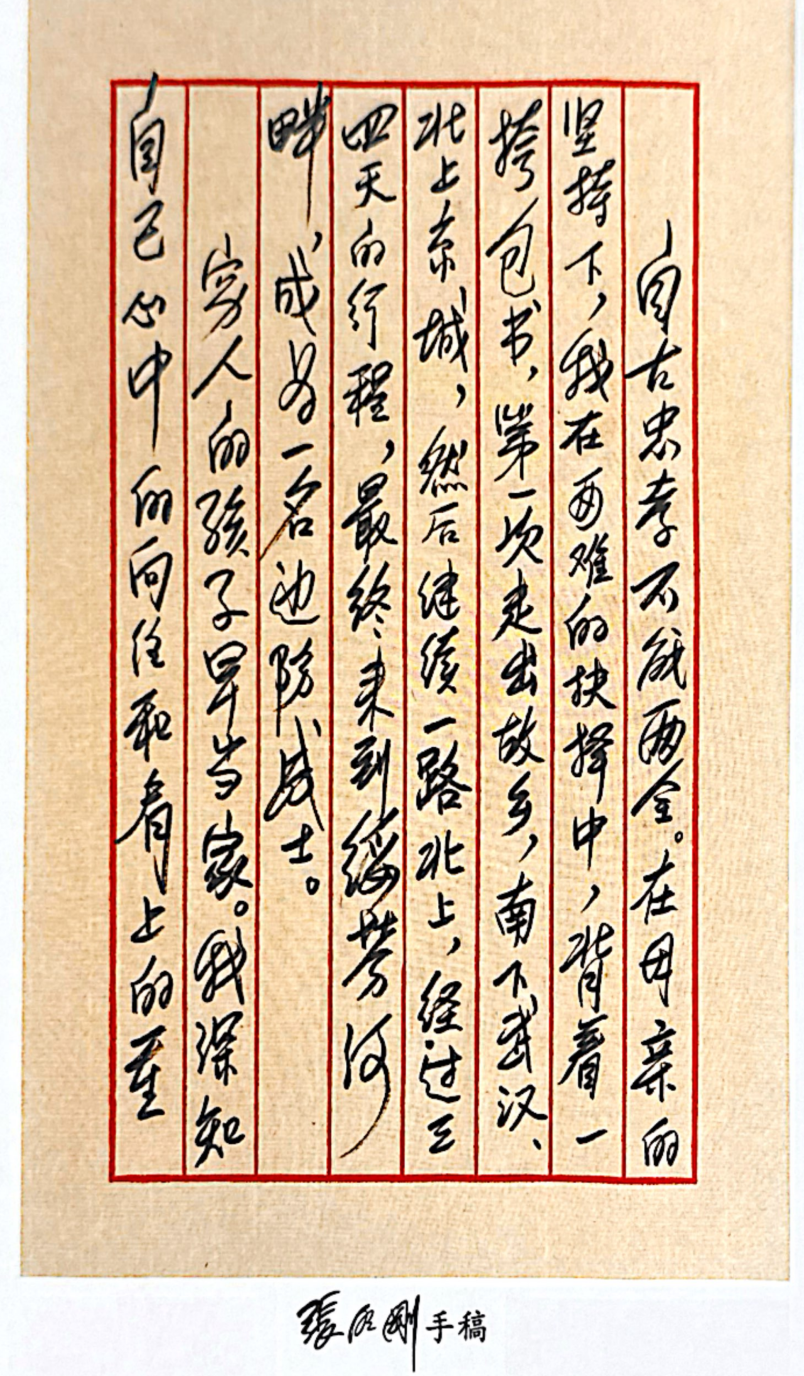 自古忠孝不能两全。在母亲的
坚持下，我在两难的抉择中，背着一
挎包书，第一次走出故乡，南下武汉、
北上京城，然后继续一路北上，经过三
四天的行程，最终来到绥芬河
畔，成为一名边防战士。
穷人的孩子早当家。我深知
自己心中的向往和肩上的重
张明刚手稿